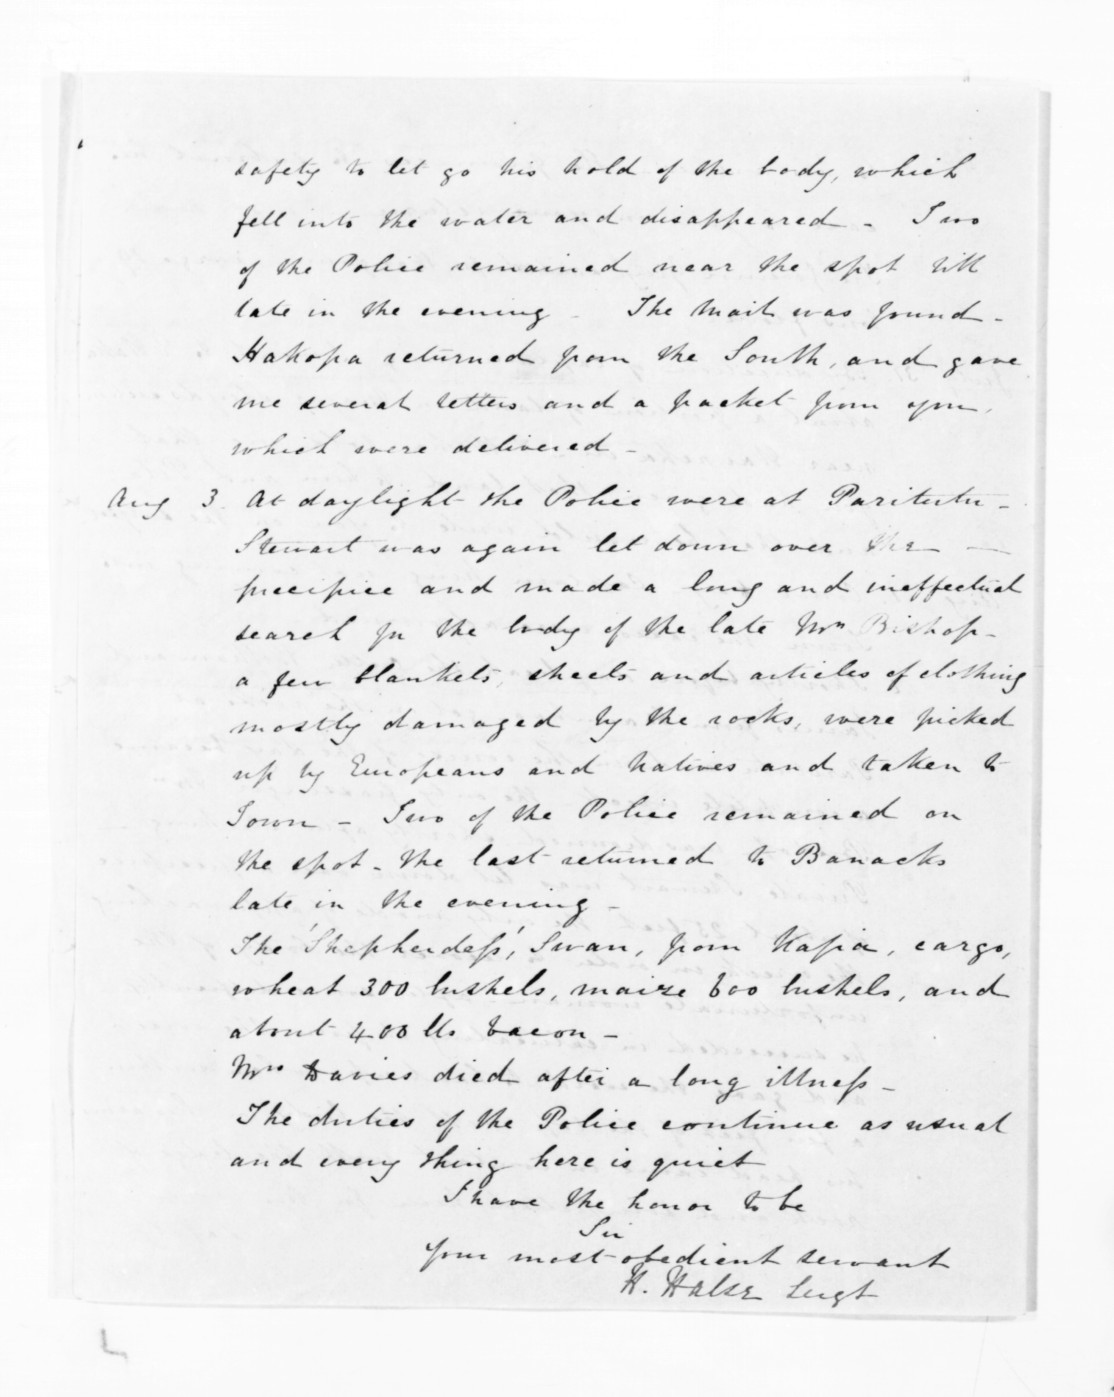 safety to let go his hold of the body, which
fell into the water and disappeared - Two
of the Police remained near the spot till
late in the evening - The Mail was found -
Hakopa returned from the South, and gave
me several letters and a packet from you,
which were delivered -
Aug 3. At daylight the Police were at Paritutu -
Stewart was again let down over the —
precipice and made a long and ineffectual
search for the body of the late Mrs Bishop -
a few blankets, sheets and articles of clothing
mostly damaged by the rocks, were picked
up by Europeans and Natives and taken to
Town - Two of the Police remained on
the spot - the last returned to Barracks
late in the evening -
The 'Shepherdess', Swan, from Kafia, cargo,
wheat 300 bushels, maize 600 bushels, and
about 400 lbs bacon -
Mrs Davies died after a long illness -
The duties of the Police continue as usual
and every thing here is quiet
I have the honor to be
Sir
Your most obedient servant
H. Halse Sergt